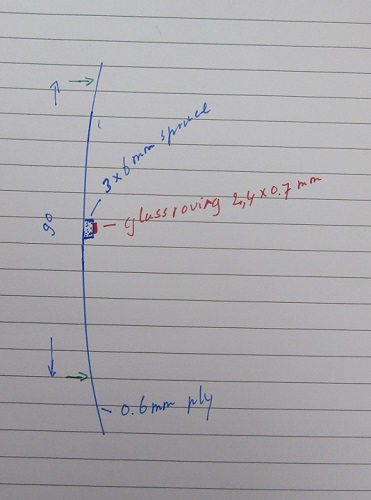 3 x 6 mm spruce
glassroving 2,4 x 0.7 mm
90
0.6mm ply